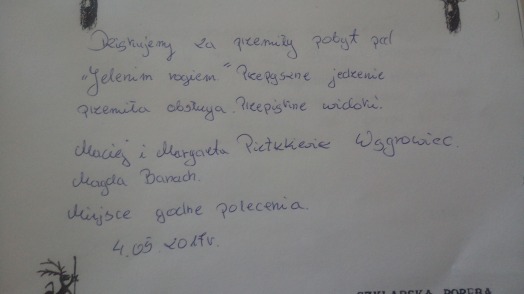 Dziękujemy za przemiły pobyt pod
"Jelenim rogiem" Przepyszne jedzenie
przemiła obsługa. Przepiękne widoki.
Maciej i Margareta Pietkiewicz Wągrowiec.
Magda Banach.
Miejsce godne polecenia.
4.05.2017r.
SZKLARSKA PORĘBA